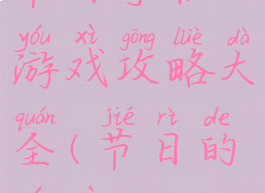 yóu xì gōng lüè dà
游戏攻略大
quán jié rì de
全(节日的